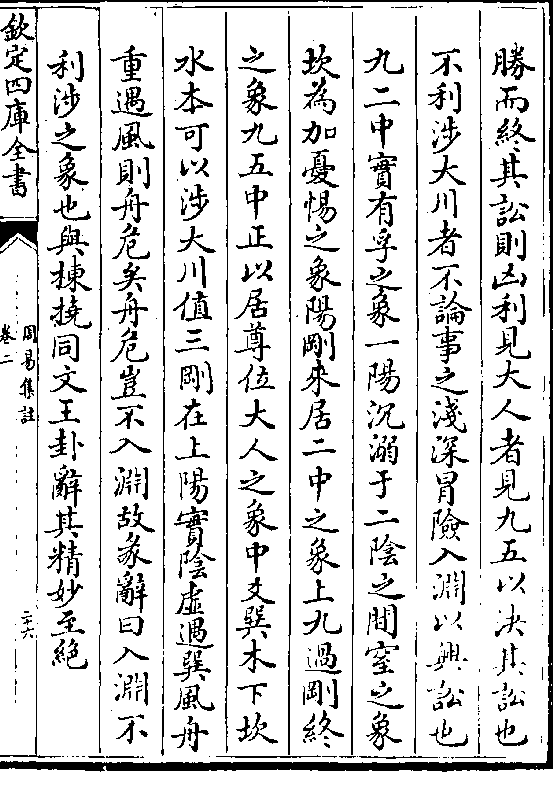 勝而終其訟則凶利見大人者見九五以決其訟也
不利涉大川者不論事之淺深冒險入淵以興訟也
九二中實有孚之象一陽沉溺于二陰之間窒之象
坎為加憂惕之象陽剛來居二中之象上九過剛終
之象九五中正以居尊位大人之象中爻巽木下坎
水本可以涉大川值三剛在上陽實陰虛遇巽風舟
重遇風則舟危矣舟危豈不入淵故彖辭曰入淵不
利涉之象也與棟撓同文王卦辭其精妙至絶
欽定四庫全書
周易集註
卷二
二十六